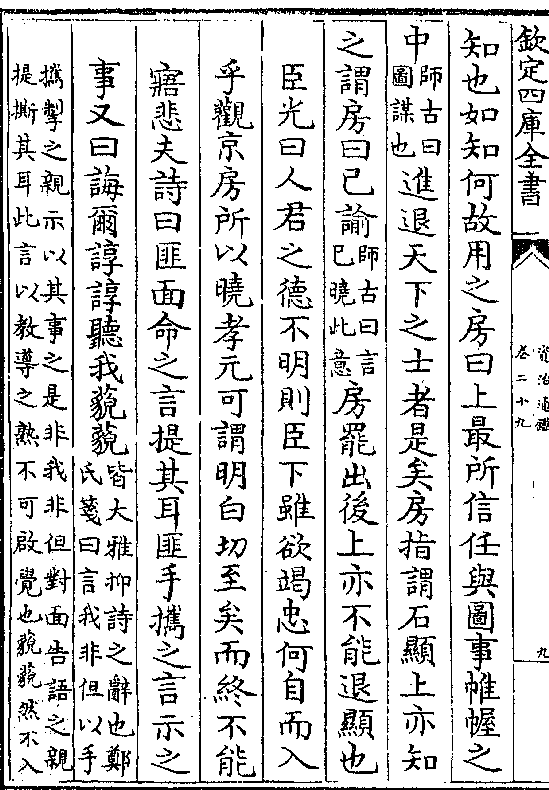 欽定四庫全書
資治通鑑
卷二十九
九
知也如知何故用之房曰上最所信任與圖事帷幄之
中師古曰圖謀也進退天下之士者是矣房指謂石顯上亦知
之謂房曰已諭師古曰言已曉此意房罷出後上亦不能退顯也
臣光曰人君之德不明則臣下雖欲竭忠何自而入
乎觀京房所以曉孝元可謂明白切至矣而終不能
寤悲夫詩曰匪面命之言提其耳匪手攜之言示之
事又曰誨爾諄諄聽我藐藐皆大雅抑詩之辭也鄭氏箋曰言我非但以手
攜掣之親示以其事之是非我非但對面告語之親
提撕其耳此言以教導之熟不可啟覺也藐藐然不入